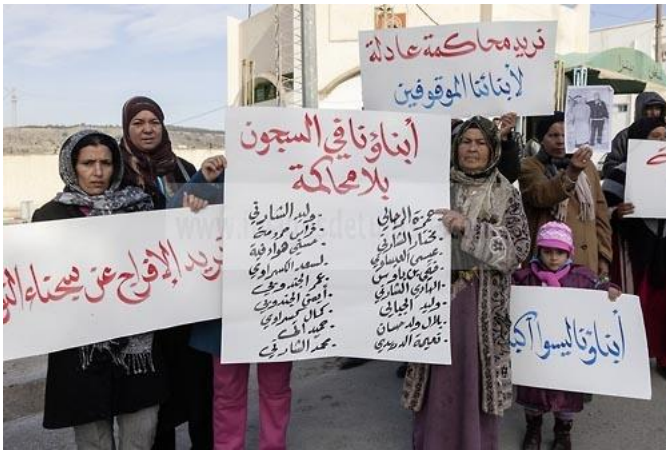 نريد محاكمة عادلة
لأبنائنا الموقوفين
أبناؤنا في السجون
بلا محاكمة
حمزة الرحالي
مختار الشارني
عيسى العيساوي
الهادي الشارني
وليد الجبالي
بلال ولد حسان
نعيمة الدريدي
وليد الشارني
فراس حمودة
لسعد الكسراوي
عمر الجندوبي
أيمن الجندوبي
كمال كسراوي
محمد الشارني
نريد الإفراج عن سجناء
أبناؤنا ليسوا